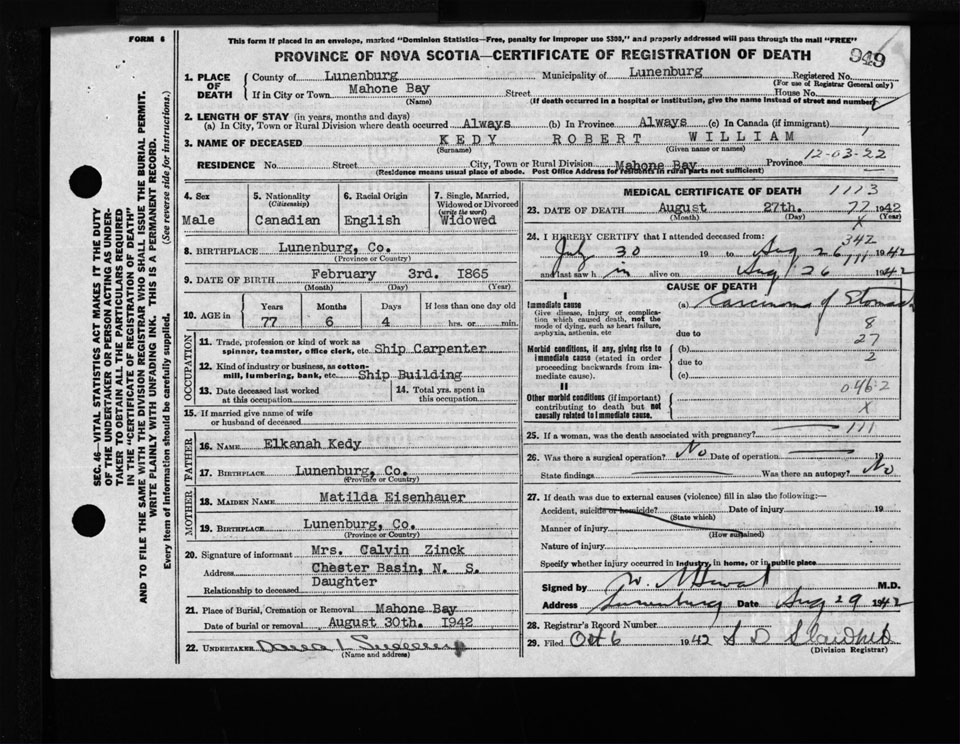 FORM 6
This form if placed in an envelope, marked "Dominion Statistics—Free, penalty for improper use $300," and properly addressed will pass through the mail "FREE"
PROVINCE OF NOVA SCOTIA—CERTIFICATE OF REGISTRATION OF DEATH
949
SEC. 46—VITAL STATISTICS ACT MAKES IT THE DUTY
OF THE UNDERTAKER OR PERSON ACTING AS UNDER-
TAKER TO OBTAIN ALL THE PARTICULARS REQUIRED
IN THE "CERTIFICATE OF REGISTRATION OF DEATH"
AND TO FILE THE SAME WITH THE DIVISION REGISTRAR WHO SHALL ISSUE THE BURIAL PERMIT.
WRITE PLAINLY WITH UNFADING INK. THIS IS A PERMANENT RECORD.
Every item of information should be carefully supplied. (See reverse side for instructions.)
1. PLACE OF DEATH
County of Lunenburg Municipality of Lunenburg Registered No.
(For use of Registrar General only)
If in City or Town Mahone Bay Street House No.
(Name) (If death occurred in a hospital or institution, give the name instead of street and number)
2. LENGTH OF STAY (in years, months and days)
(a) In City, Town or Rural Division where death occurred Always (b) In Province Always (c) In Canada (if immigrant)
3. NAME OF DECEASED KEDY ROBERT WILLIAM
(Surname) (Given name or names)
12-03-22
RESIDENCE No. Street City, Town or Rural Division Mahone Bay Province
(Residence means usual place of abode. Post Office Address for residents in rural parts not sufficient)
4. Sex
Male
5. Nationality
(Citizenship)
Canadian
6. Racial Origin
English
7. Single, Married,
Widowed or Divorced
(write the word)
Widowed
8. BIRTHPLACE Lunenburg, Co.
(Province or Country)
9. DATE OF BIRTH February 3rd. 1865
(Month) (Day) (Year)
10. AGE in
Years Months Days If less than one day old
77 6 4 hrs. or min.
OCCUPATION
11. Trade, profession or kind of work as
spinner, teamster, office clerk, etc. Ship Carpenter
12. Kind of industry or business, as cotton-
mill, lumbering, bank, etc. Ship Building
13. Date deceased last worked
at this occupation
14. Total yrs. spent in
this occupation
15. If married give name of wife
or husband of deceased
FATHER
16. NAME Elkanah Kedy
17. BIRTHPLACE Lunenburg, Co.
(Province or Country)
MOTHER
18. MAIDEN NAME Matilda Eisenhauer
19. BIRTHPLACE Lunenburg, Co.
(Province or Country)
20. Signature of informant Mrs. Calvin Zinck
Address Chester Basin, N. S.
Relationship to deceased Daughter
21. Place of Burial, Cremation or Removal Mahone Bay
Date of burial or removal August 30th. 1942
22. UNDERTAKER
(Name and address)
MEDICAL CERTIFICATE OF DEATH 1113
23. DATE OF DEATH August 27th. 77 1942
(Month) (Day) (Year)
x
24. I HEREBY CERTIFY that I attended deceased from:
342
July 30 19 to Aug 26 1942
111
and last saw him alive on Aug 26 1942
CAUSE OF DEATH
I
Immediate cause (a) Carcinoma of Stomach
Give disease, injury or complica-
tion which caused death, not the
mode of dying, such as heart failure,
asphyxia, asthenia, etc
due to
8
27
Morbid conditions, if any, giving rise to
immediate cause (stated in order
proceeding backwards from im-
mediate cause).
(b)
due to 2
(c)
II
Other morbid conditions (if important)
contributing to death but not
causally related to immediate cause.
046.2
x
111
25. If a woman, was the death associated with pregnancy?
26. Was there a surgical operation? No Date of operation 19
State findings Was there an autopsy? No
27. If death was due to external causes (violence) fill in also the following:—
Accident, suicide or homicide? Date of injury 19
(State which)
Manner of injury
(How sustained)
Nature of injury
Specify whether injury occurred in industry, in home, or in public place
Signed by M.D.
Address Lunenburg Date Aug 29 1942
28. Registrar's Record Number
29. Filed Oct 6 1942
(Division Registrar)